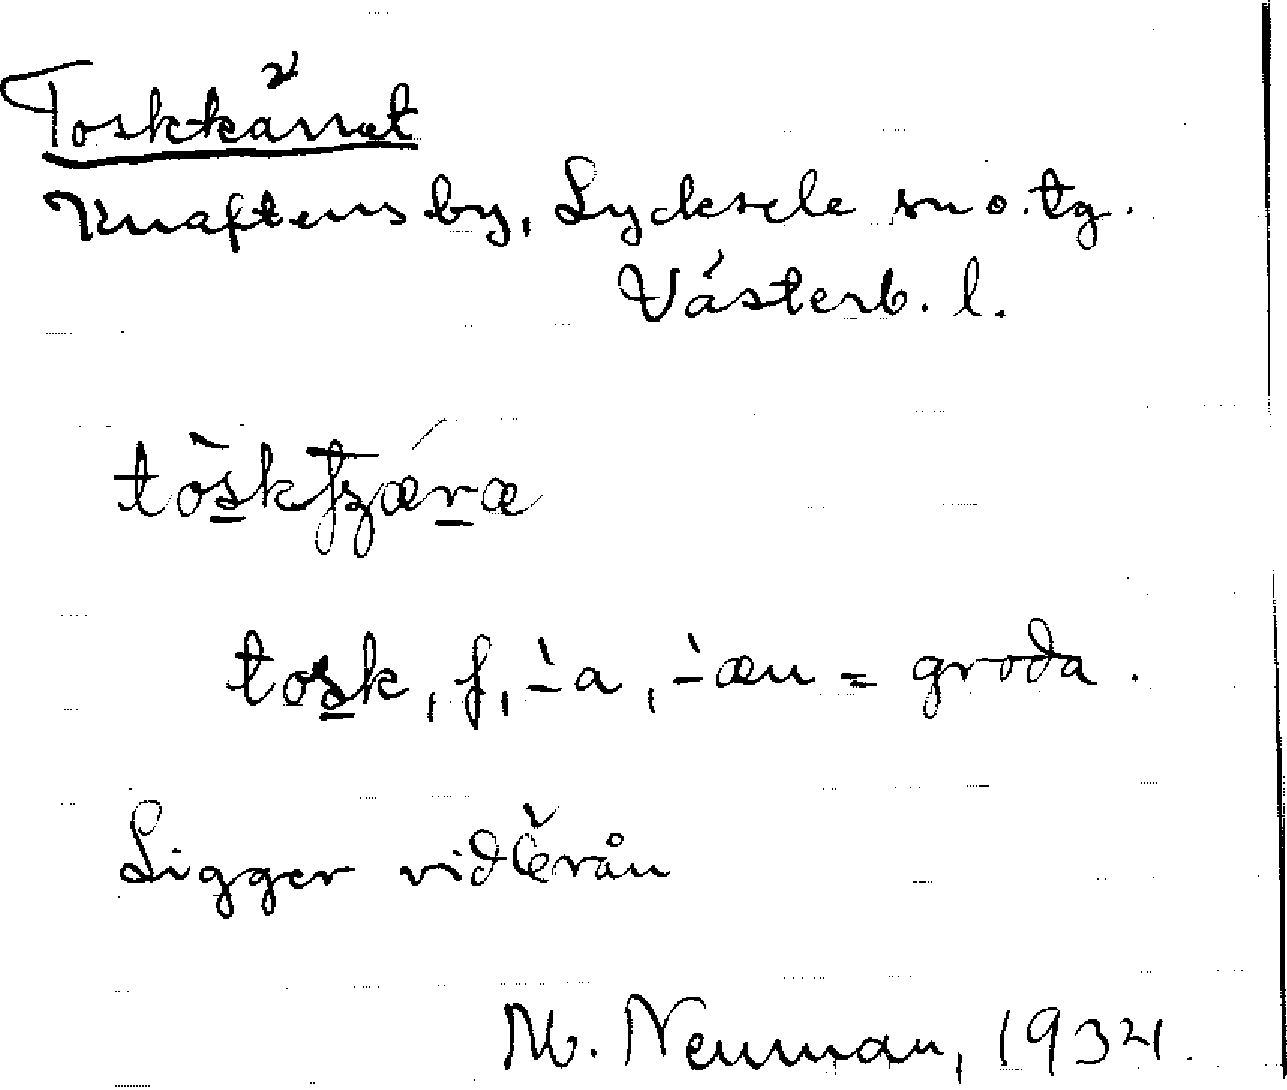 Toskkärret
Knaftens by, Lycksele sn o. tg.
Västerb. l.
tòskʈʂæ´ra
tosk, f, -̀a, -̀æn = groda.
Ligger vid Örån
M. Neuman, 1934.